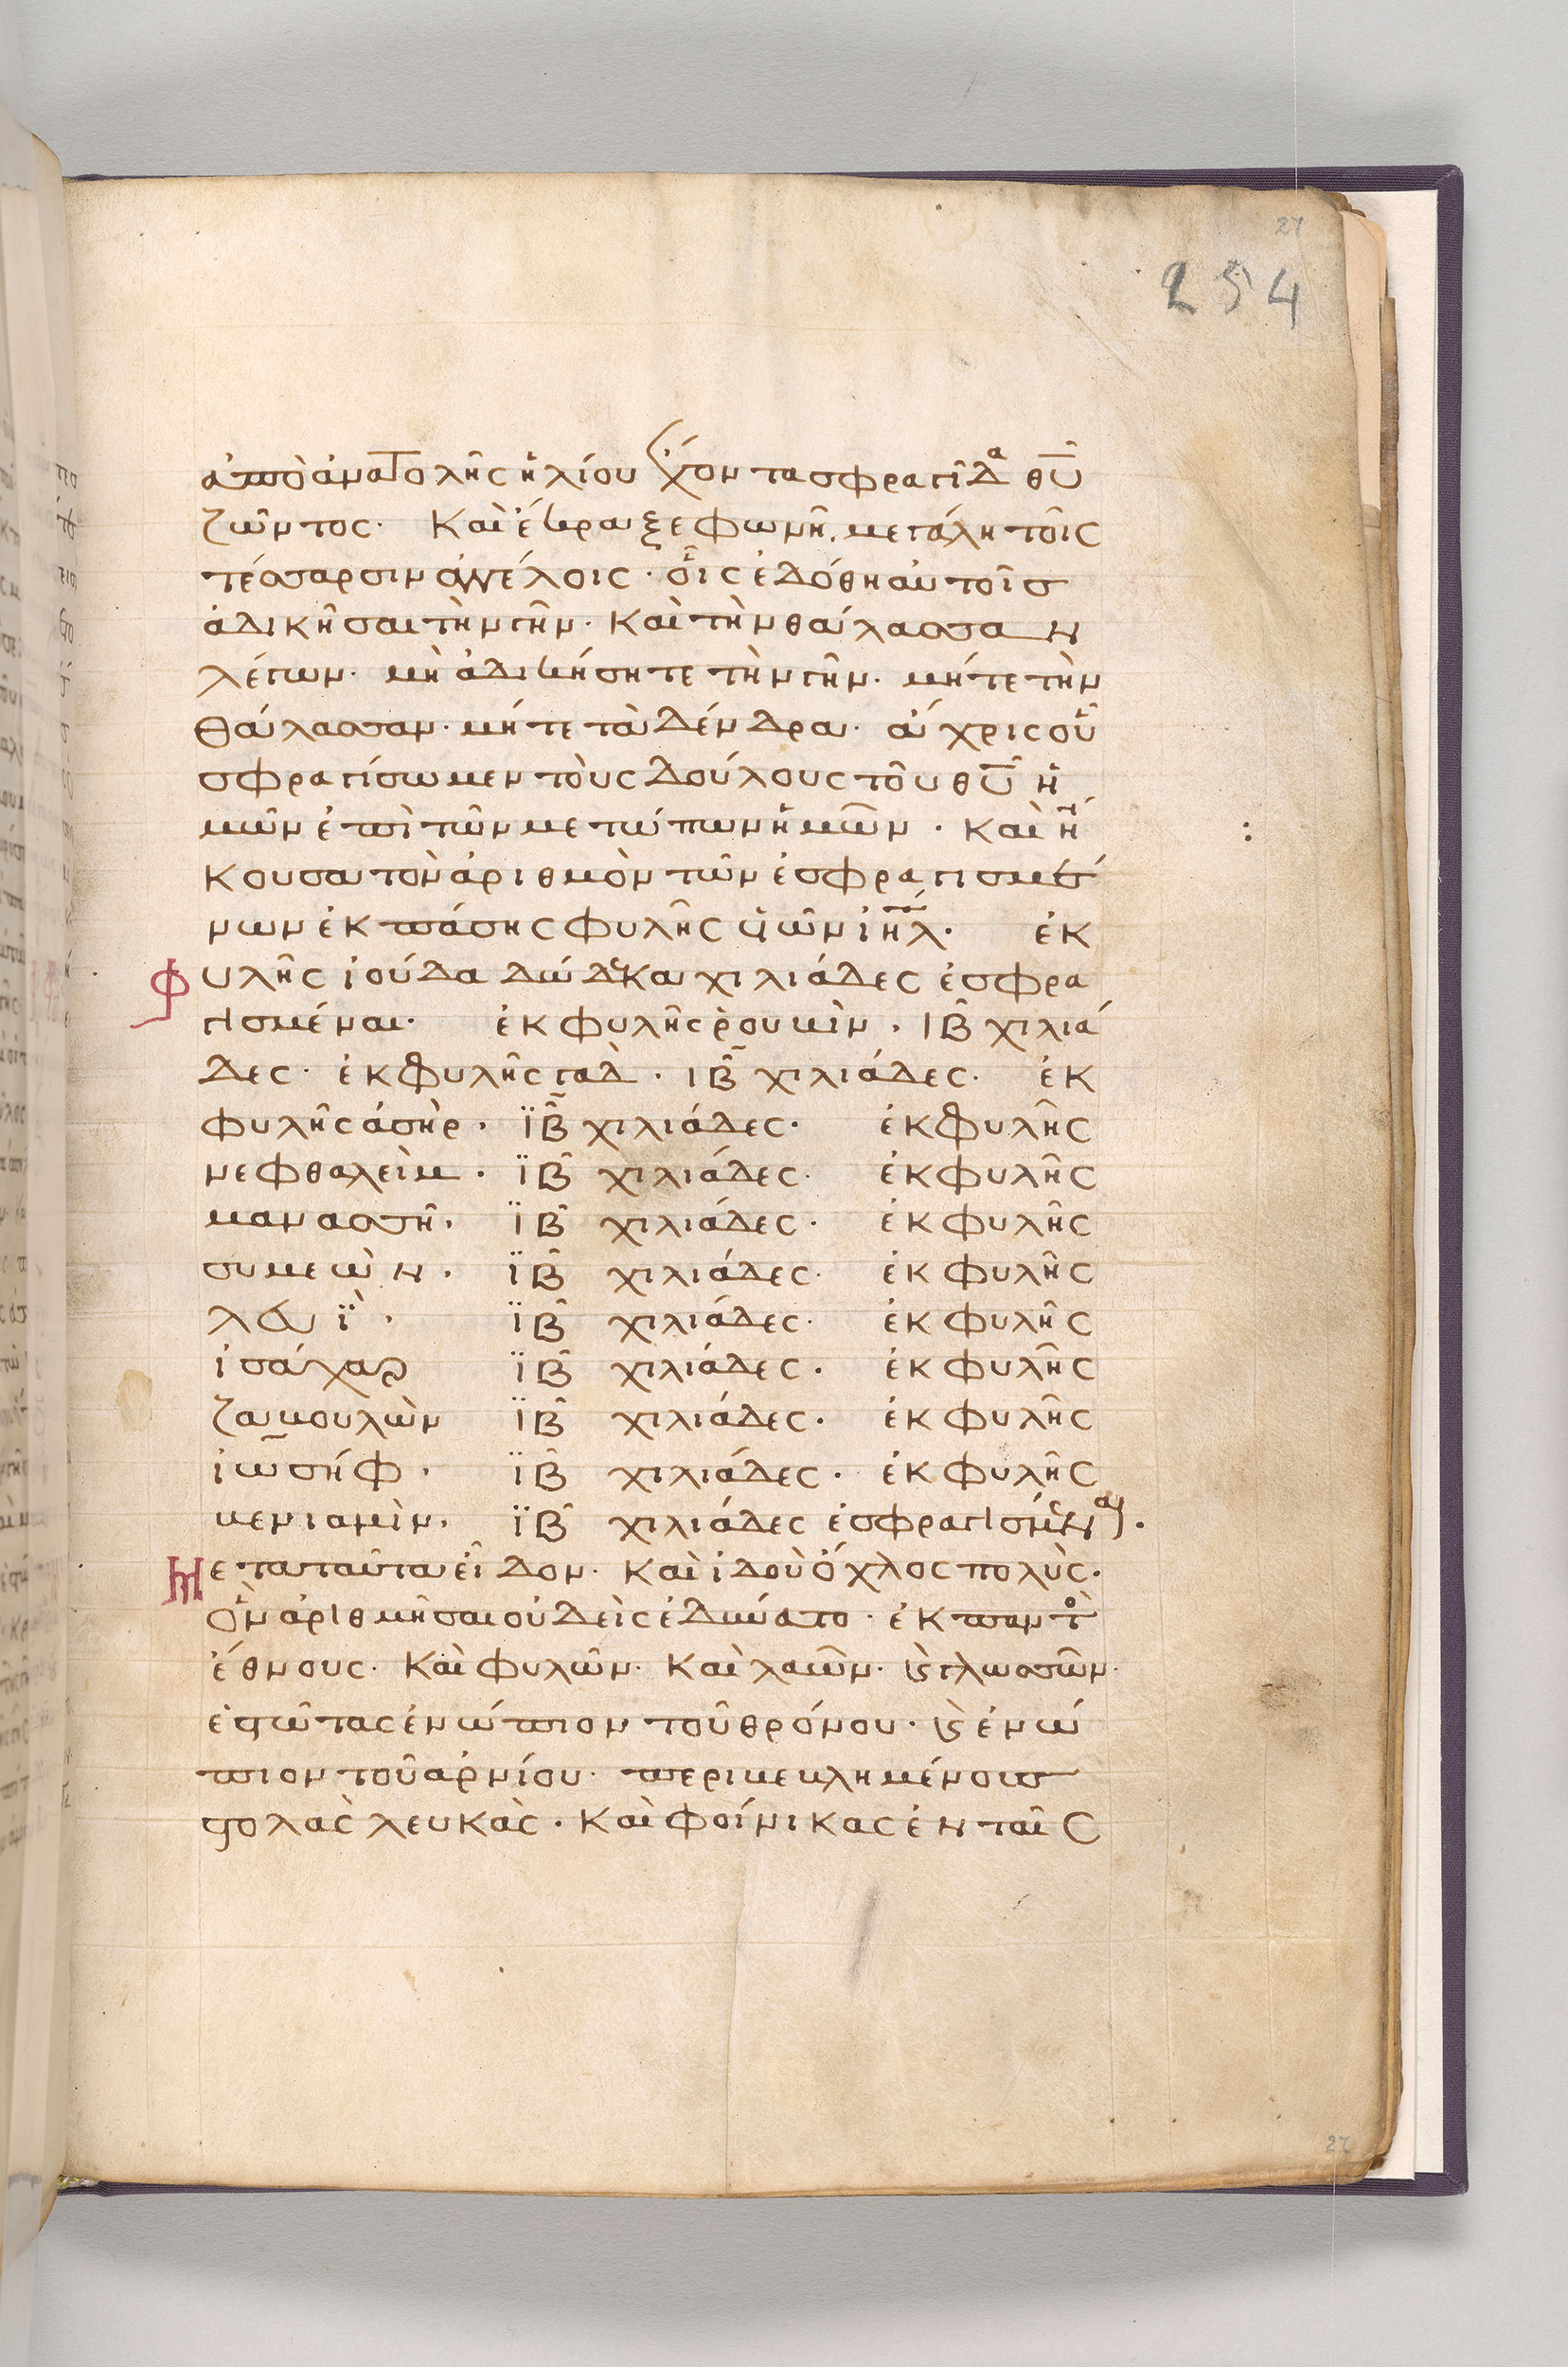 27
254
ἀπὸ ἀνατολῆς ἡλίου ἔχοντα σφραγῖδα θῦ
ζῶντος· Καὶ ἔκραξε φωνῆ μεγάλη τοῖς
τέσσαρσιν ἀγγέλοις· οἷς ἐδόθη αὐτοῖς
ἀδικῆσαι τὴν γῆν· Καὶ τὴν θάλασσαν
λέγων· μὴ ἀδικήσητε τὴν γῆν· μήτε τὴν
θάλασσαν· μήτε τὰ δένδρα· ἄχρις οὗ
σφραγίσωμεν τοὺς δούλους τοῦ θῦ ἡ
μῶν ἐπὶ τῶν μετώπων ἡμῶν· Καὶ ἤ
κουσα τὸν ἀριθμὸν τῶν ἐσφραγισμέ
νων ἐκ πάσης φυλῆς ϋἱῶν ἰηλ· ἐκ
φυλῆς ἰούδα δώδεκα χιλιάδες ἐσφρα
γισμέναι· ἐκ φυλῆς ῥουκὶν· ιβ χιλιά
δες· ἐκ φυλῆς γαδ· ιβ χιλιάδες· ἐκ
φυλῆς ἀσὴρ· ϊβ χιλιάδες· ἐκ φυλῆς
νεφθαλεὶμ· ϊβ χιλιάδες· ἐκ φυλῆς
μανασσῆ· ϊβ χιλιάδες· ἐκ φυλῆς
συμεὼν· ϊβ χιλιάδες· ἐκ φυλῆς
λευϊ· ϊβ χιλιάδες· ἐκ φυλῆς
ἰσάχαρ ϊβ χιλιάδες· ἐκ φυλῆς
ζακουλὼν ϊβ χιλιάδες· ἐκ φυλῆς
ἰωσήφ· ϊβ χιλιάδες· ἐκ φυλῆς
κενιαμὶν· ϊβ χιλιάδες ἐσφραγισμέναι·
Μετα ταῦτα εἶδον· Καὶ ἰδοὺ ὄχλος πολὺς·
ὃν ἀριθμῆσαι οὐδεὶς ἐδύνατο· ἐκ παντὸς
ἔθνους· Καὶ φυλῶν· Καὶ λαῶν· ϗ γλωσσῶν·
ἑστῶτας ἐνώπιον τοῦ θρόνου· ϗ ἐνώ
πιον τοῦ ἀρνίου· περικεκλημένους
στολὰς λευκὰς· Καὶ φοίνικας ἐν ταῖς
27